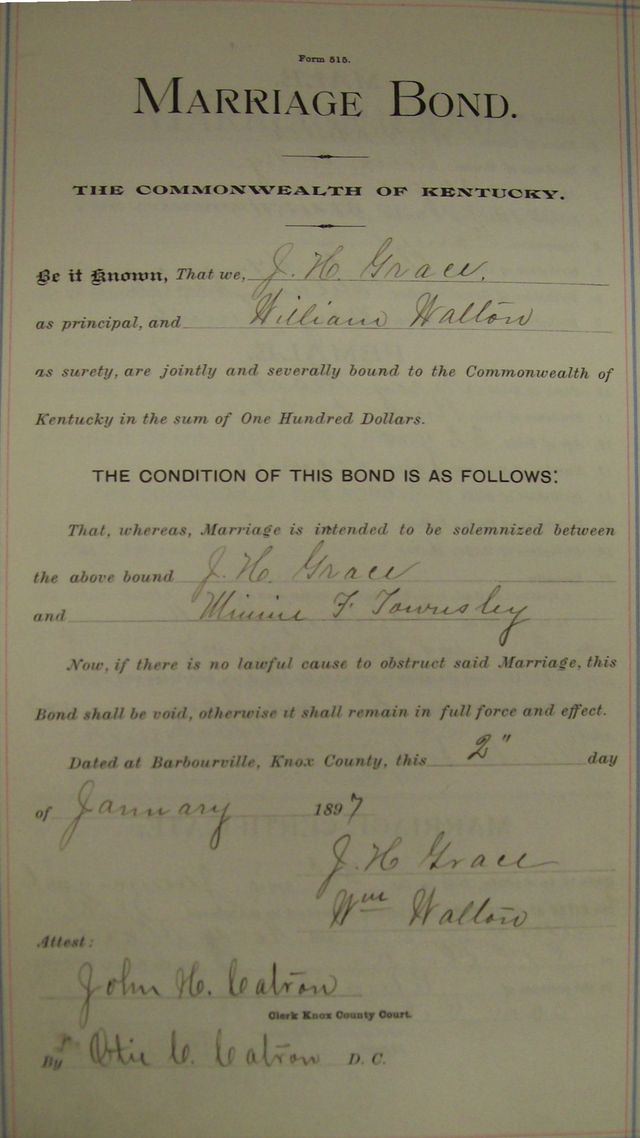 Form 515.
MARRIAGE BOND.
THE COMMONWEALTH OF KENTUCKY.
Be it Known, That we, J. H. Grace.
as principal, and William Walton
as surety, are jointly and severally bound to the Commonwealth of
Kentucky in the sum of One Hundred Dollars.
THE CONDITION OF THIS BOND IS AS FOLLOWS:
That, whereas, Marriage is intended to be solemnized between
the above bound J. H. Grace
and Minnie F Townsley
Now, if there is no lawful cause to obstruct said Marriage, this
Bond shall be void, otherwise it shall remain in full force and effect.
Dated at Barbourville, Knox County, this 2" day
of January 1897
J. H Grace
Wm Walton
Attest:
John H. Catron
Clerk Knox County Court.
By C. Catron D. C.